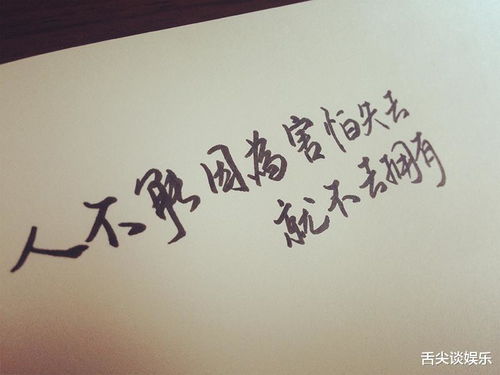 人不能因為害怕失去
就不去拥有
舌尖谈娱乐